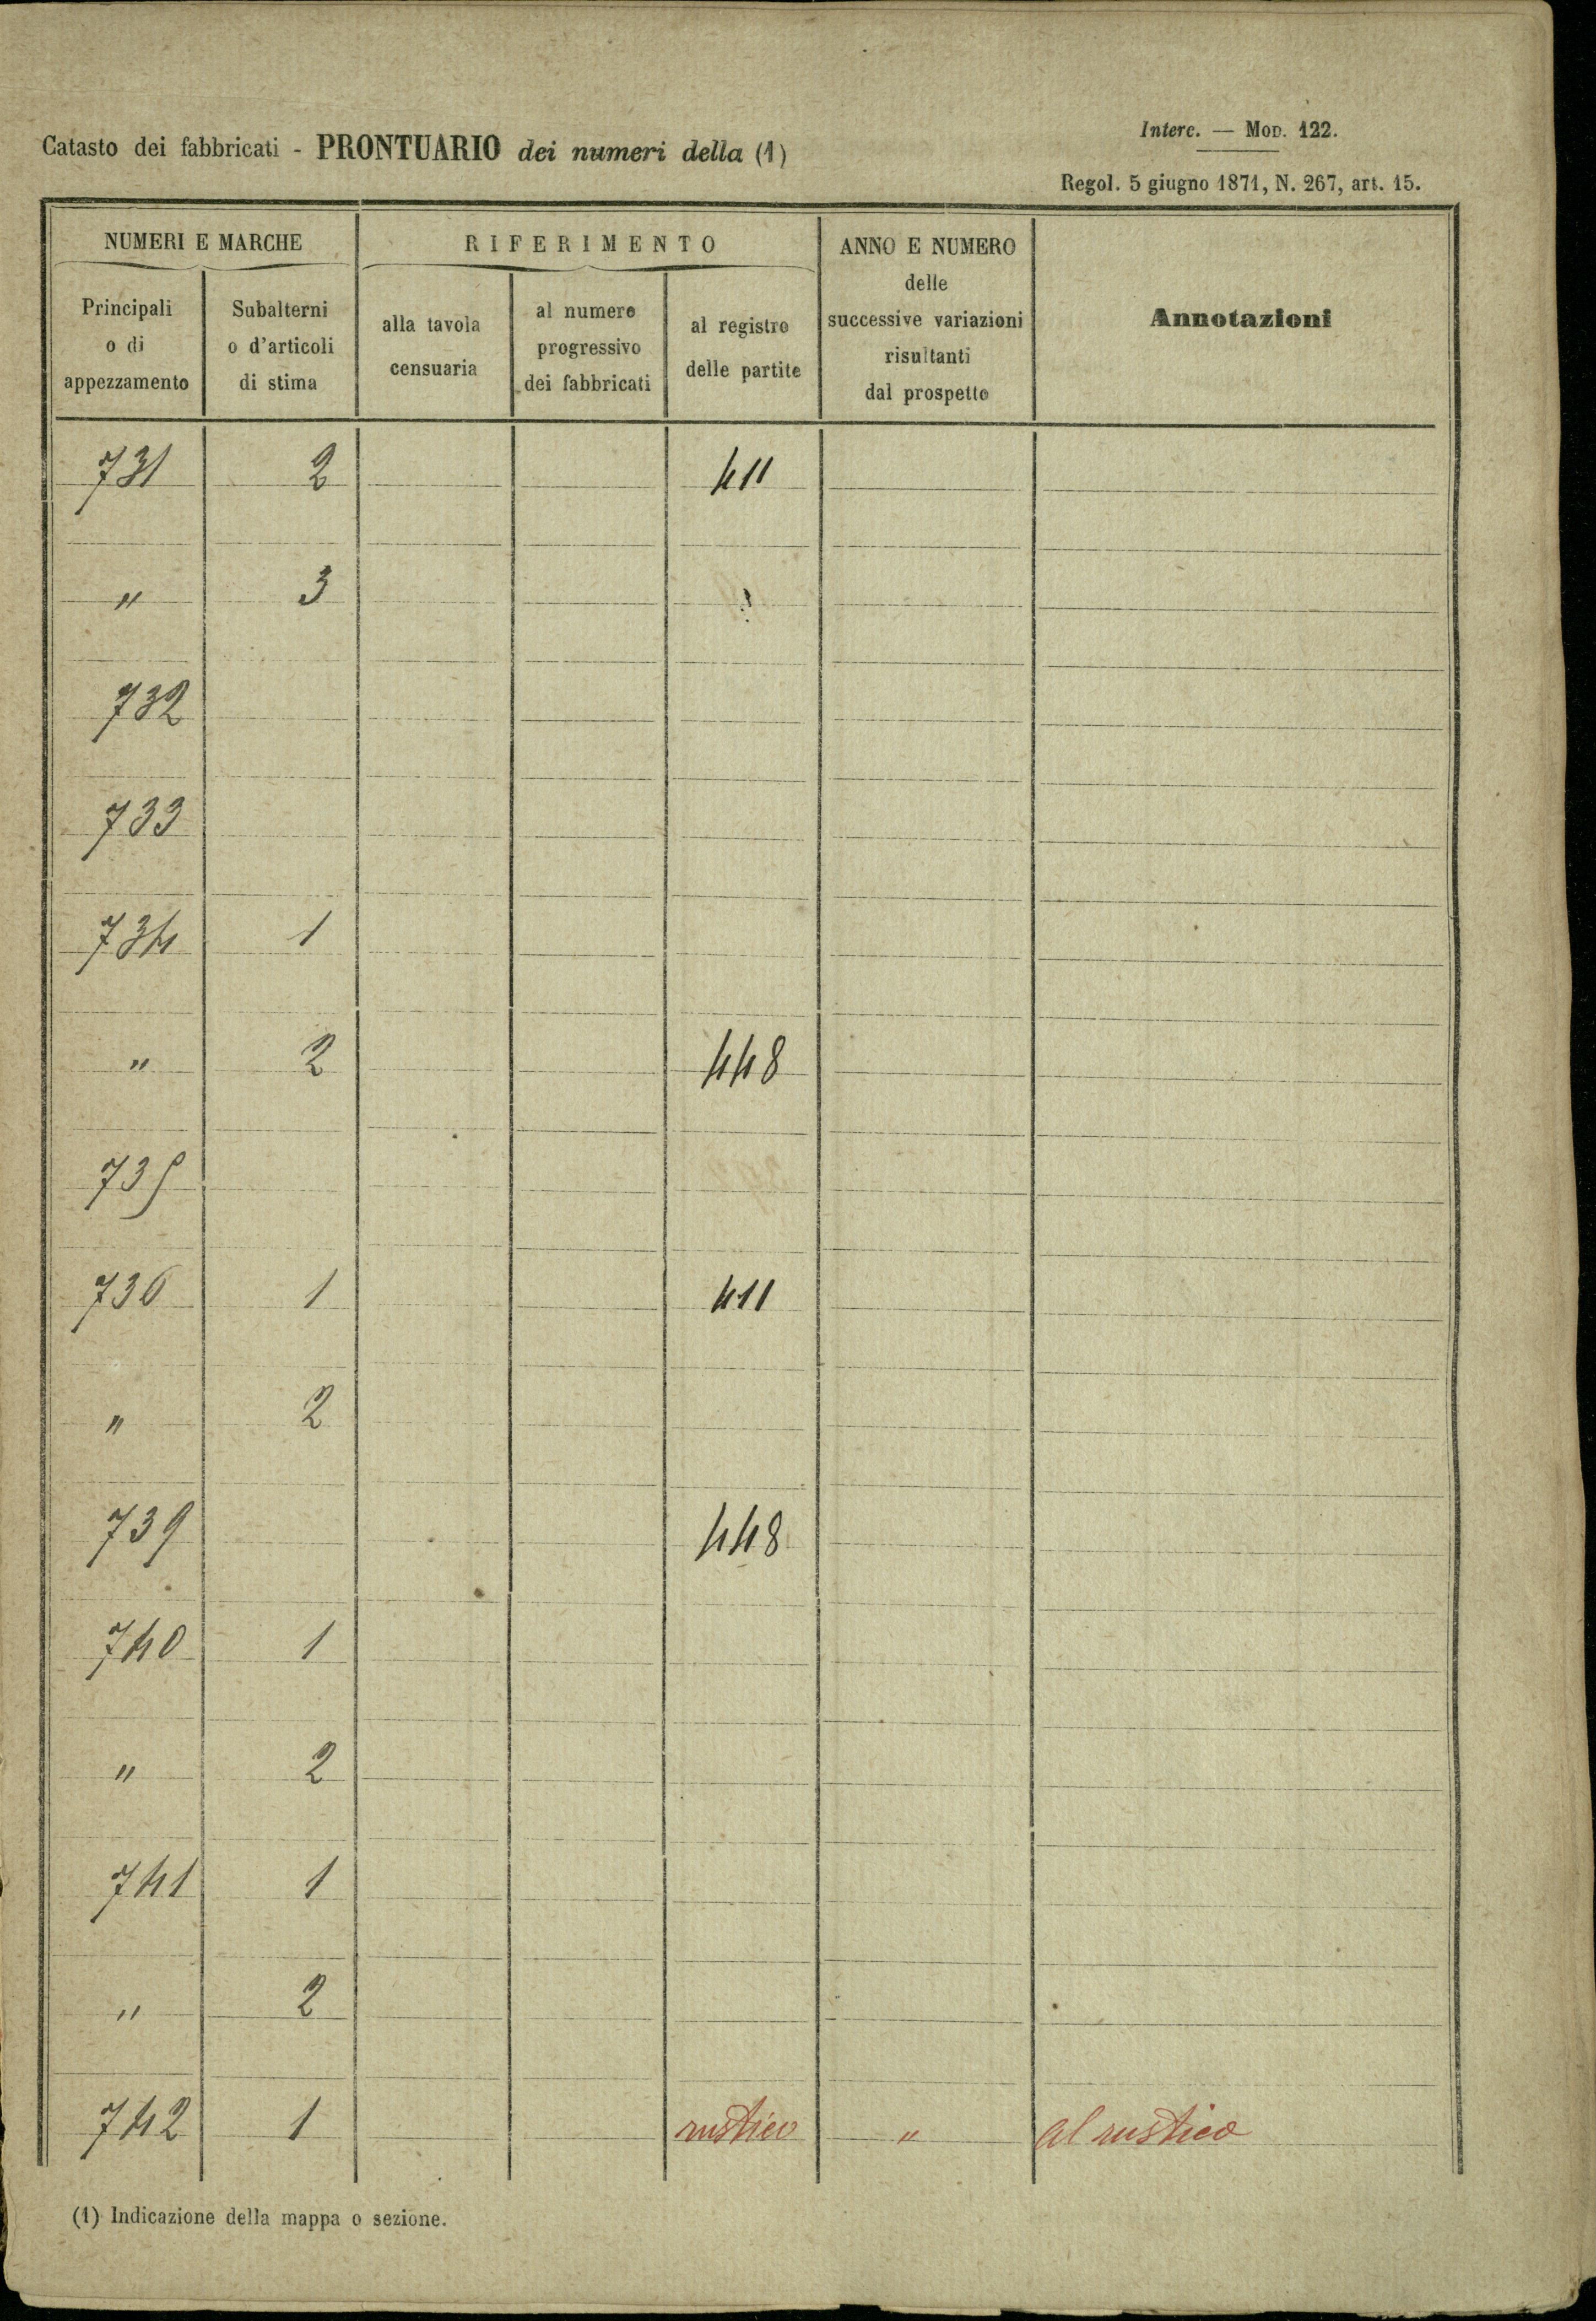 Catasto dei fabbricati - PRONTUARIO dei numeri della (1)
Interc. — Mod. 122.
Regol. 5 giugno 1871, N. 267, art. 15.
NUMERI E MARCHE
RIFERIMENTO
ANNO E NUMERO
delle
successive variazioni
risultanti
dal prospetto
Annotazioni
Principali
o di
appezzamento
Subalterni
o d'articoli
di stima
alla tavola
censuaria
al numero
progressivo
dei fabbricati
al registro
delle partite
731 2 411
" 3
732
733
734 1
" 2 448
735
736 1 411
" 2
739 448
740 1
" 2
741 1
" 2
742 1 rustico " al rustico
(1) Indicazione della mappa o sezione.